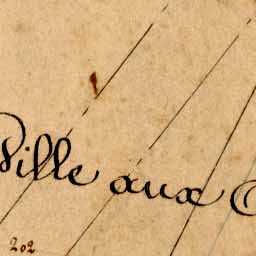 Ville aux
202